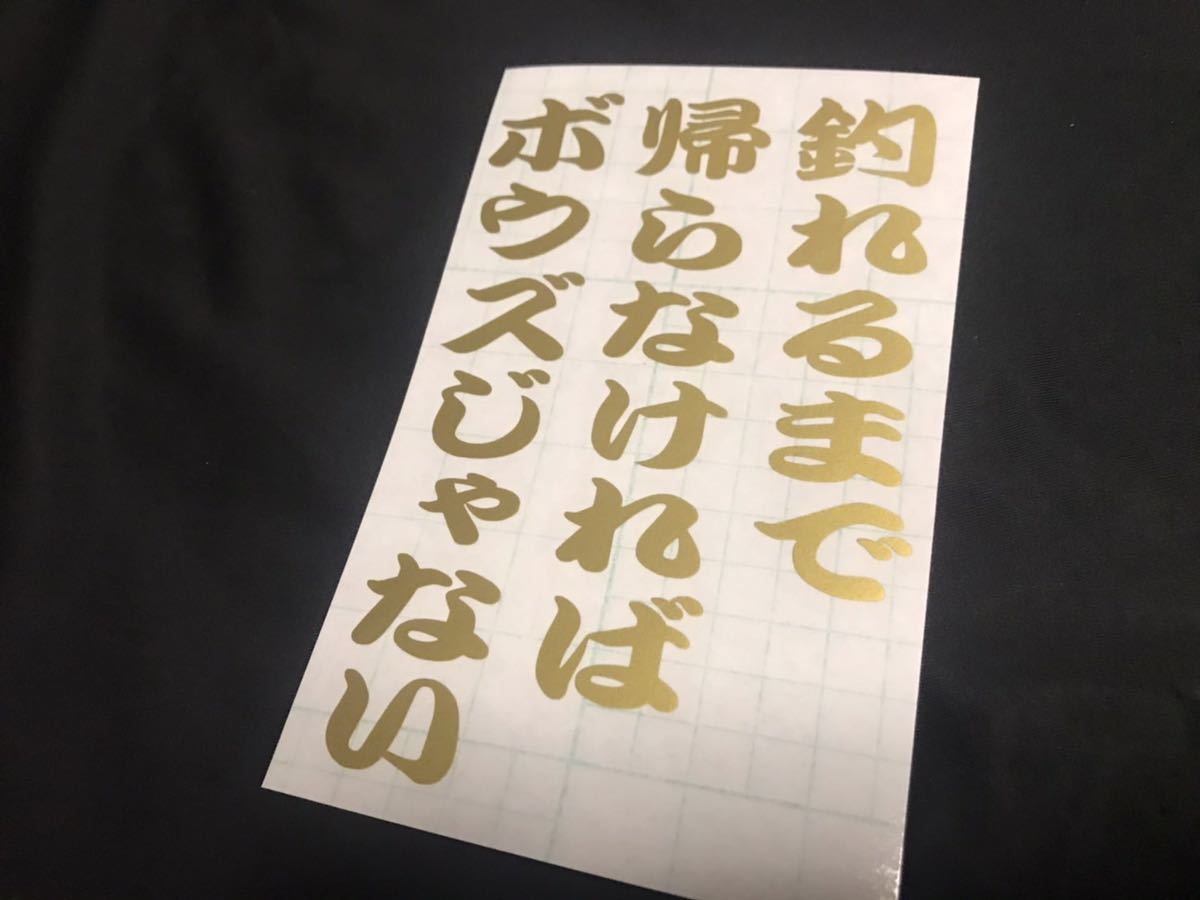 釣れるまで
帰らなければ
ボウズじゃない